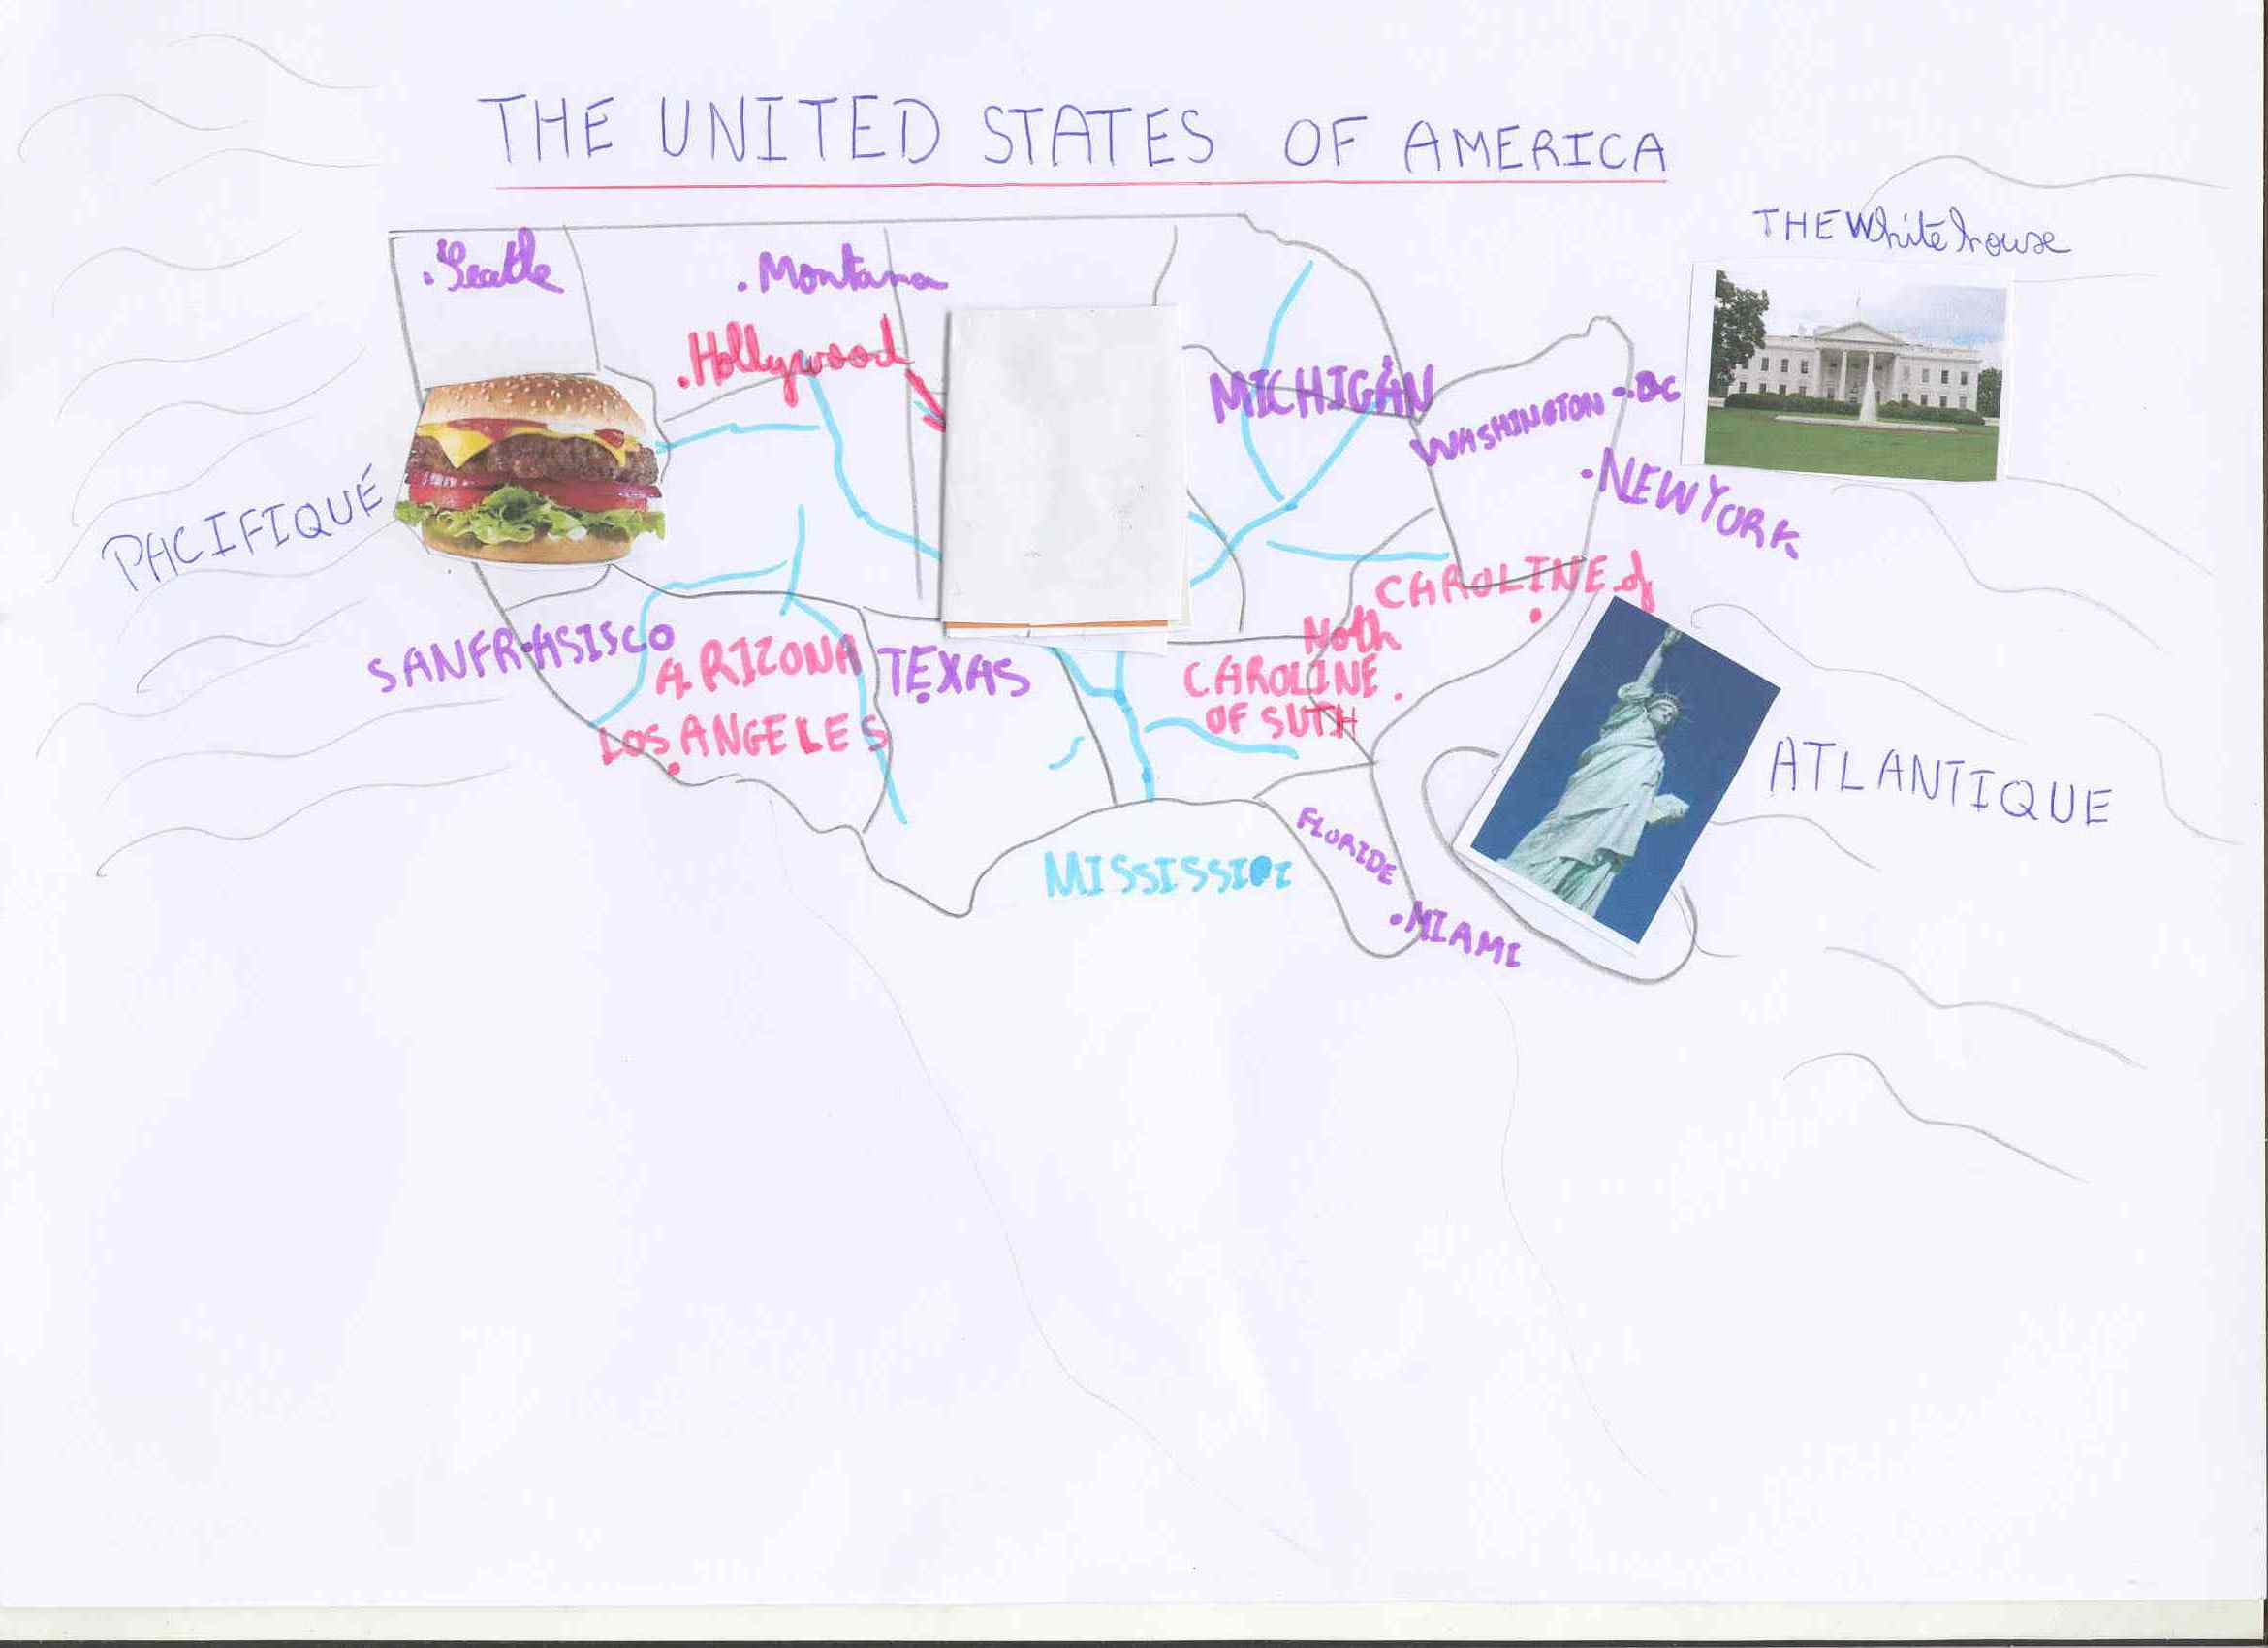 THE UNITED STATES OF AMERICA
THE White house
.Seatle
.Montana
.Hollywood
MICHIGAN
WASHINGTON-DC
.NEWYORK
PACIFIQUE
CAROLINE of
Noth
SANFRASISCO
ARIZONA
TEXAS
CAROLINE.
OF SUTH
LOS ANGELES
ATLANTIQUE
FLORIDE
MISSISSIPI
.MIAMI